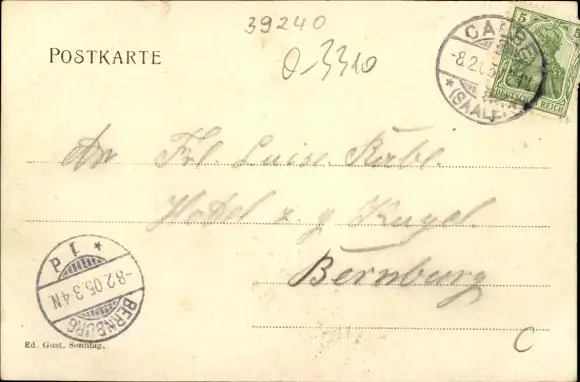 39240
POSTKARTE
0-3310
CALBE
-8.2.05
* (SAALE)
5
DEUTSCHES REICH
An Frl. Luise Räbel.
Hotel z. g. Kugel.
Bernburg
BERNBURG
-8.2.05.3-4N
* 1 d
C
Ed. Gust. Sonntag.